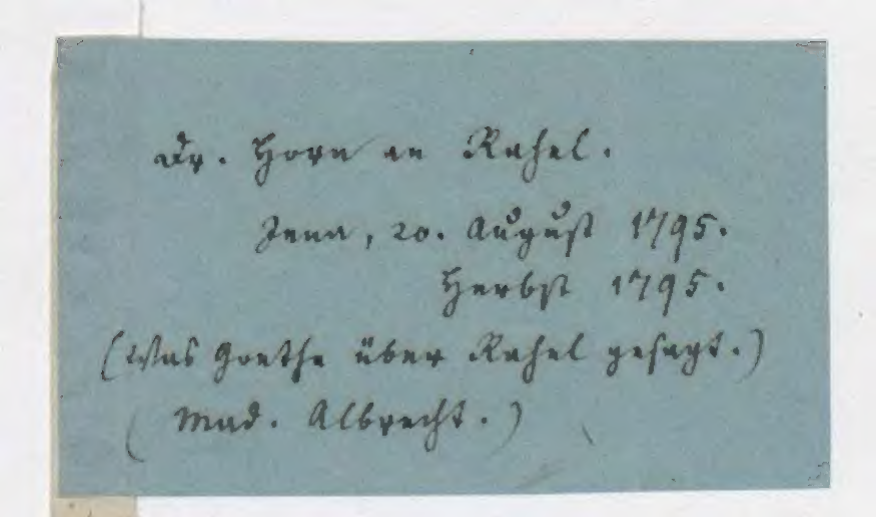 Dr. Horn an Rahel.
Jena, 20. August 1795.
Herbst 1795.
(Was Goethe über Rahel gesagt.)
(Mad. Albrecht.)